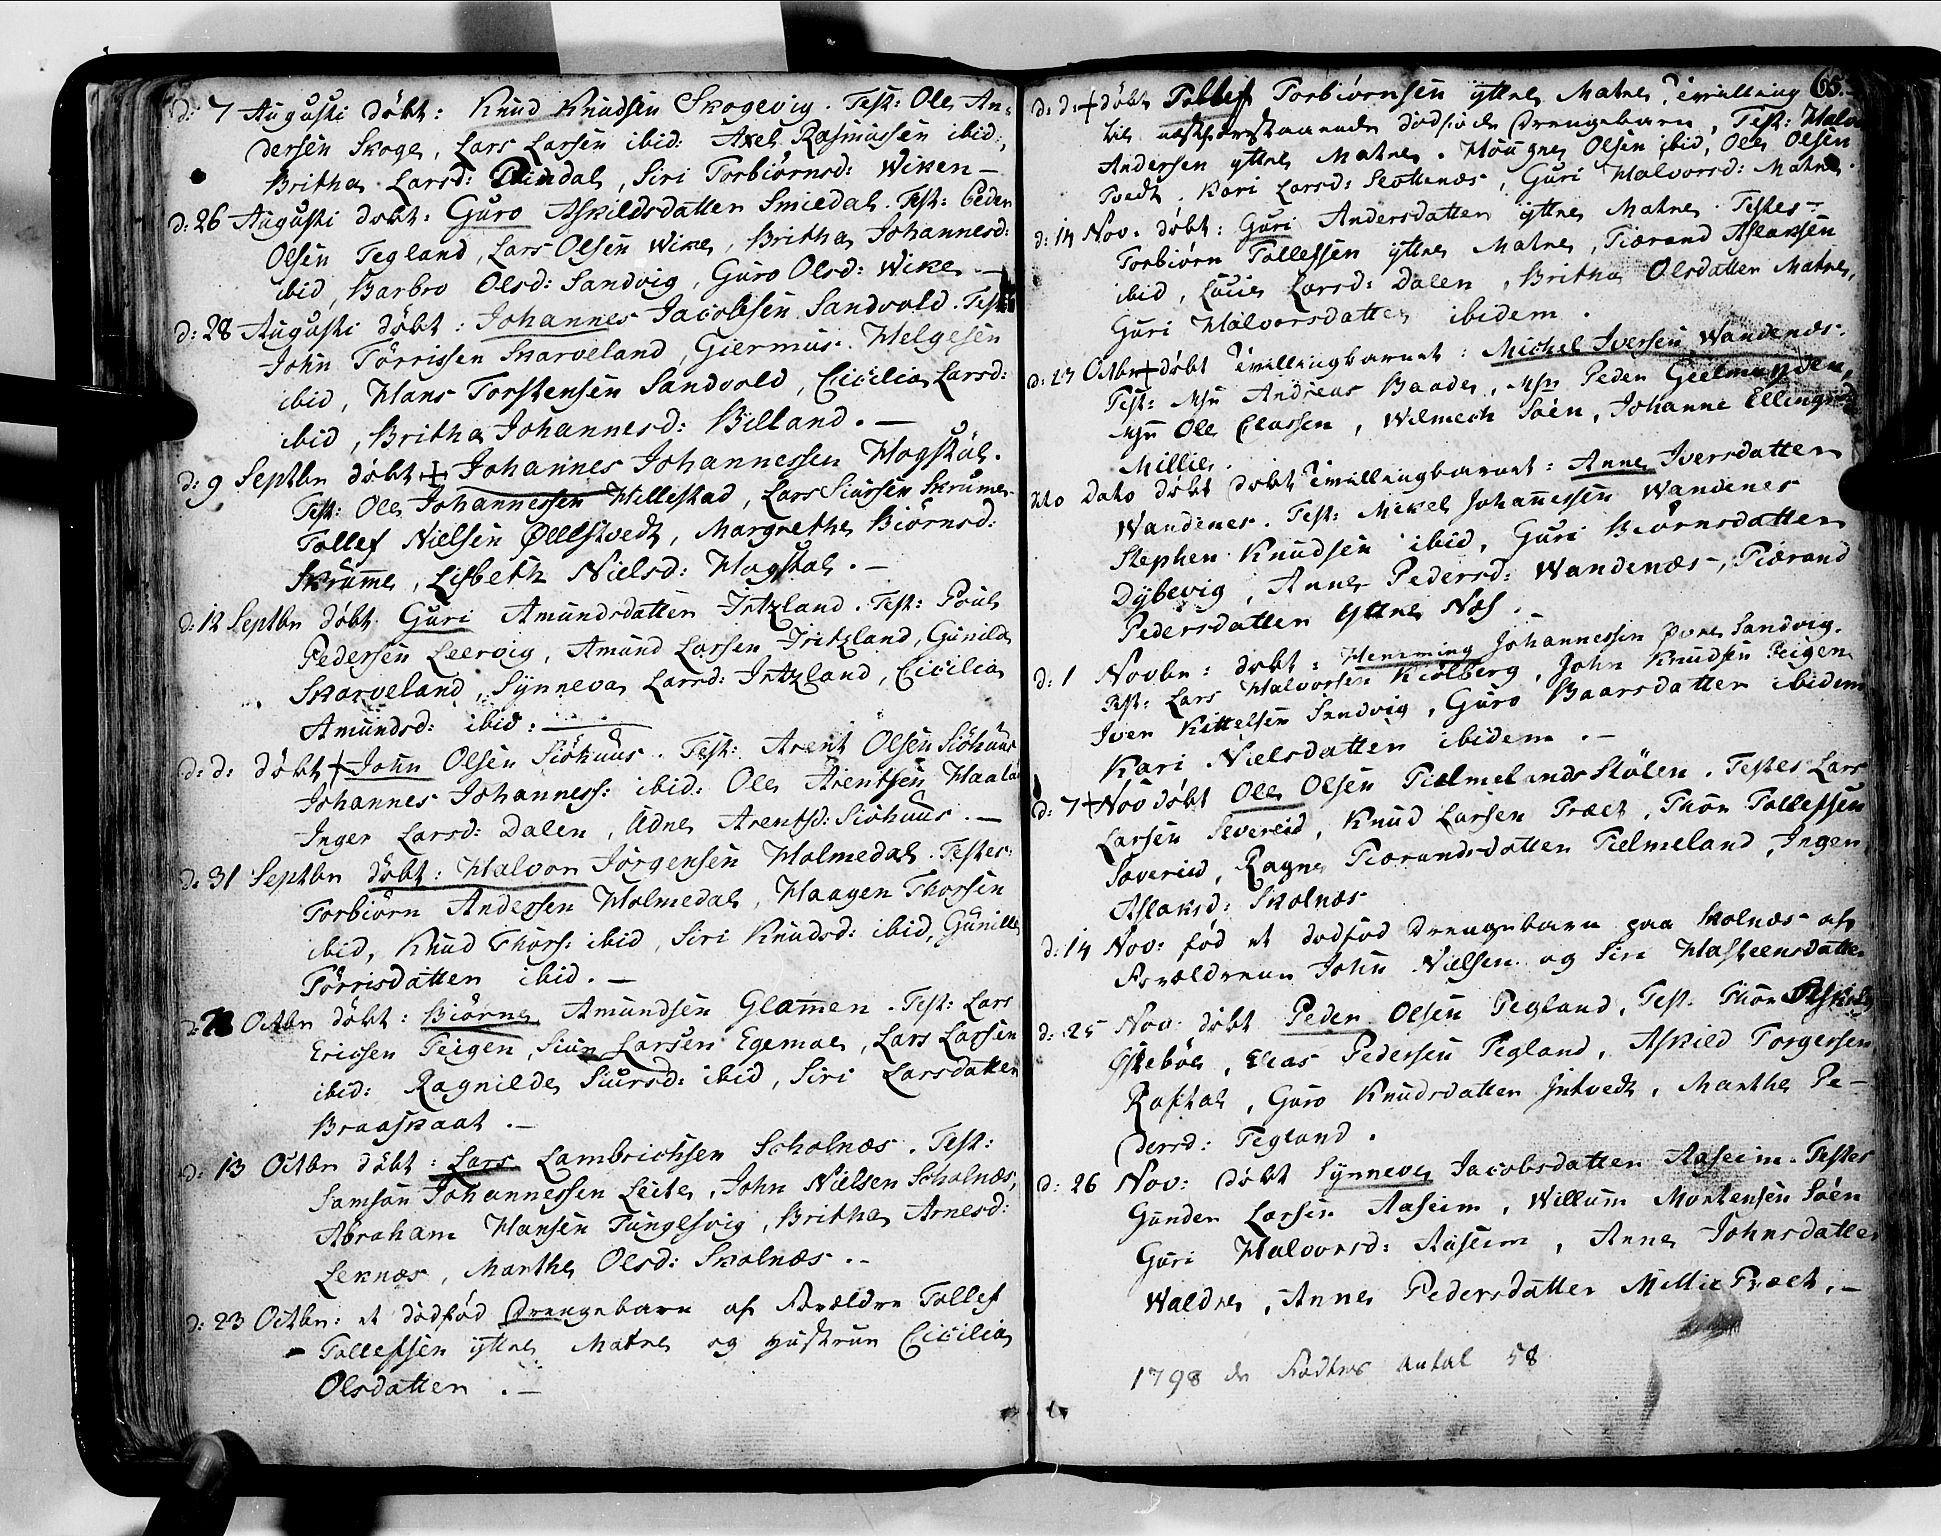 d: 7 Augusti döbt: Knud Knudsen Skogevig. Test: Ole An-
dersen Skoge, Lars Larsen ibid: Axel Rasmussen ibid:,
Britha Larsd: Rindal, Siri Torbiörnsd: Wiken –
d: 26 Augusti döbt: Guro Askildsdatter Smiedal. Test: Peder
Olsen Tegland, Lars Olsen Wike, Britha Johannesd:
ibid, Barbro Olsd: Sandvig, Guro Olsd: Wike. –
d: 28 Augusti döbt: Johannes Jacobsen Sandvold. Test:
John Törrissen Skarveland, Giermun Helgesen
ibid, Hans Torstensen Sandvold, Cicilia Larsd:
ibid, Britha Johannesd: Billand. –
d: 9 Septbr döbt + Johannes Johannessen Hogstøl.
Test: Ole Johannessen Hillestad, Lars Siursen Skrume
Tollef Nielsen Øllstvedt, Margrethe Biörnsd:
Skrumme, Lisbeth Nielsd: Hogstøl. –
d: 12 Septbr döbt Guri Amundsdatter Irtzland. Test: Poul
Pedersen Leervig, Amund Larsen Irtzland, Gunilde
Skarveland, Synneva Larsd: Irtzland, Cicilia
Amundsd: ibid: –
d: d: döbt + John Olsen Siöhuus. Test: Arent Olsen Siöhuus
Johannes Johanness: ibid: Ole Arentsen Haaland
Inger Larsd: Dalen, Udne Arentsd: Siöhuus. –
d: 31 Septbr döbt: Halvor Jörgensen Holmedal. Testes:
Torbiörn Andersen Holmedal, Haagen Thorsen
ibid, Knud Thors: ibid, Siri Knudsd: ibid, Gunille
Törrisdatter ibid. –
Octbr döbt: Biörne Amundsen Glammen. Test: Lars
Ericsen Teigen, Siur Larsen Egemoe, Lars Larsen
ibid: Ragnilde Siursd: ibid, Siri Larsdatter
Braaskaat. –
d: 13 Octbr döbt: Lars Lambrichsen Scholnæs. Test:
Samson Johannessen Leite, John Nielsen Scholnæs,
Abraham Hansen Tungesvig, Britha Arnesd:
Leknæs, Marthe Olsd: Skolnæs. –
d: 23 Octbr: et dödföd Drengebarn af Forældre Tollef
– Tollefsen ÿttre Matre og Hustrue Cicilia
Olsdatter. –
65.
d: d: + döbt Tollef Torbiörnsen ÿttre Matre, Tvilling
til næstforestaaende dödföde Drengebarn, Test: Halvor
Andersen ÿttre Matre. Hougne Olsen ibid, Ole Olsen
Tvedt, Kari Larsd: Slottenæs, Guri Halvorsd: Matre.
d: 14 Nov. döbt: Guri Andersdatter ÿttre Matre. Testes:
Torbiörn Tollefsen ÿttre Matre, Tiærand Aslaksen
ibid, Lucie Larsd: Dalen, Britha Olsdatter Matre,
Guri Halvorsdatter ibidem.
d: 23 Octbr + döbt Tvillingbarnet: Michel Iversen Wandenæs.
Test: Msr Andreas Baade, Msr Peder Geelmuyden,
Msr Ole Classen, Wilmech Söen, Johanne Ellingsd
Millie.
dito Dato döbt döbt Tvillingbarnet: Anne Iversdatter
Wandenes. Test: Mikel Johannessen Wandenes
Stephen Knudsen ibid, Guri Biörnsdatter
Dybevig, Anne Pedersd: Wandenæs, Tiærand
Pedersdatter ÿttre Næs. –
d: 1 Novbr: döbt: Hemming Johannessen Øvre Sandvig.
Test: Lars Halvorsen Kiölberg, John Knudsen Teigen
Iver Kittelsen Sandvig, Guro Baarsdatter ibidem
Kari Nielsdatter ibidem. –
d: 7 + Nov döbt Ole Olsen TielmelandsStölen. Testes Lars
Larsen Severeid, Knud Larsen Træet, Thor Tollefsen
Severeid, Ragne Tiærandsdatter Tielmeland, Inger
Aslaksd: Skolnæs
d: 14 Nov: fød et dødfød Drengebarn paa Skolnæs af
Forældrene John Nielsen og Siri Hasteensdatter
d: 25 Nov: döbt Peder Olsen Tegland, Test. Thor Askelds
Østebøe, Elias Pedersen Tegland, Askild Torgersen
Rafdal, Guro Knudsdatter Jntvedt, Marthe Pe-
dersd: Tegland.
d: 26 Nov: döbt Synneve Jacobsdatter Aaseim. Testes
Gunder Larsen Aaseim, Willum Mortensen Søen
Guri Halvorsd: Aaseim, Anne Johnsdatter
Waldre, Anne Pedersdatter Millie Træet. –
1798 de Fødtes Antal 58